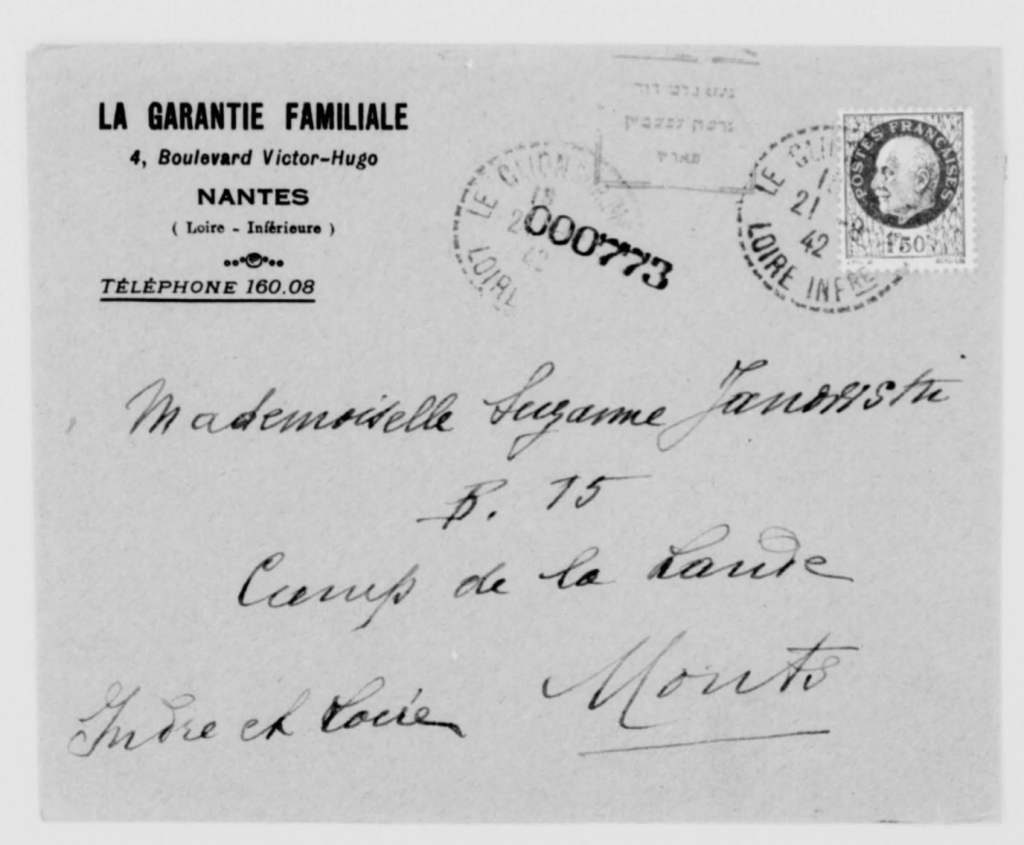 LA GARANTIE FAMILIALE
4, Boulevard Victor-Hugo
NANTES
( Loire - Inférieure )
TÉLÉPHONE 160.08
LE CLION S.M
LOIRE
000773
LE CLI
21 -8
42
LOIRE INFRE
POSTES FRANÇAISES
1F50
Mademoiselle Suzanne
B. 15
Camp de la Lande
Monts
Indre et Loire